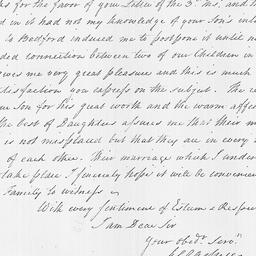 for the favor of your Letter of the 3d. Ms. and
in it had not my knowledge of your Son's
to Bedford induced me to postpone it until
ded connection between two of our Children in
gives me very great pleasure and this is much
tisfaction you express on the subject. The
ur Son for his great worth and the warm affec
the best of Daughters assures me that their
is not misplaced but that they are in every
of each other. Their marriage which I under
take place I sincerely hope it will be convenien
Family to witness
With every sentiment of Esteem & Respec
I am Dear Sir
Your Obedt. Servt.